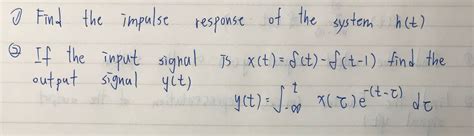 ① Find the impulse response of the system h(t)
② If the input signal is x(t)=δ(t)-δ(t-1) find the
output signal y(t)
y(t)=∫_{-∞}^{t} x(τ)e^{-(t-τ)} dτ